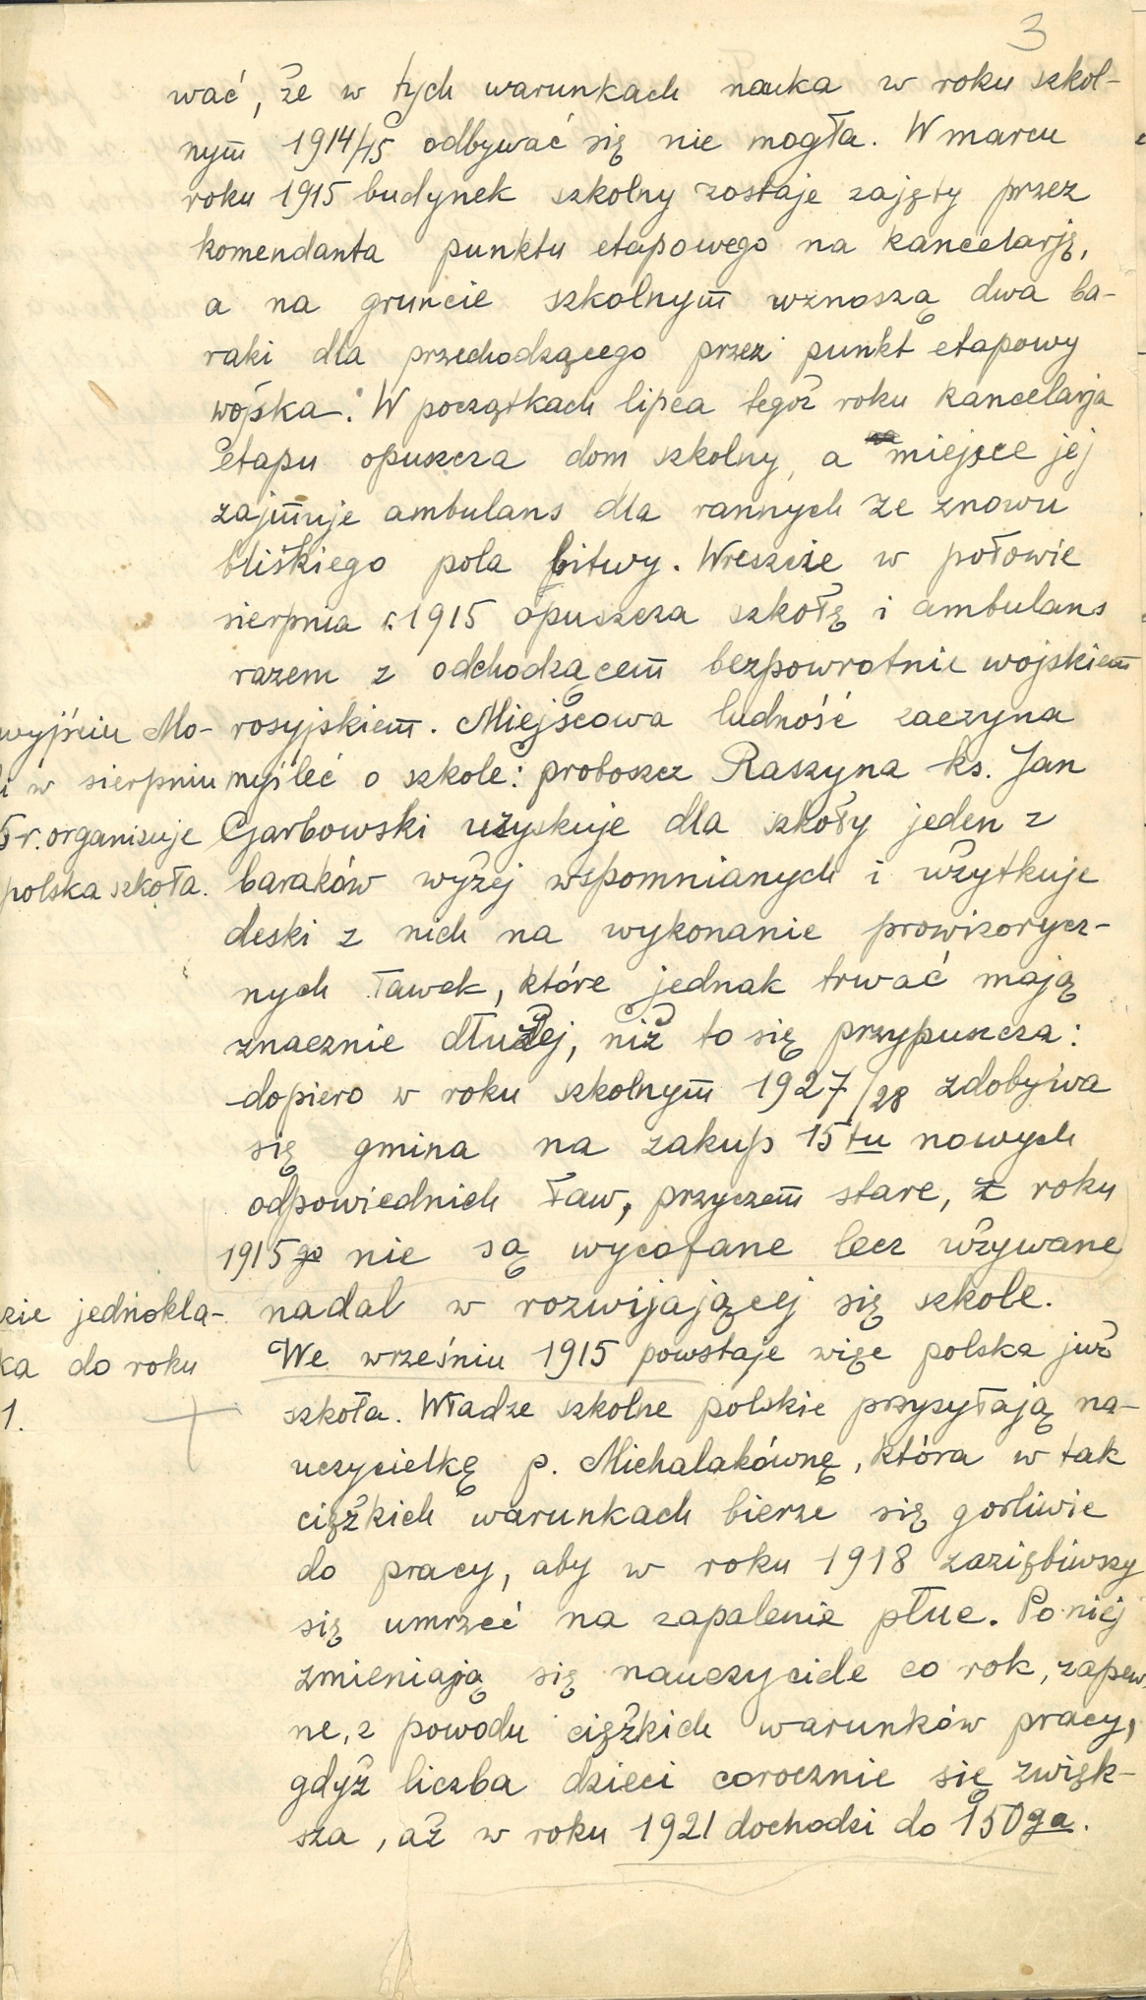 3
wać, że w tych warunkach nauka w roku szkol-
nym 1914/15 odbywać się nie mogła. W marcu
roku 1915 budynek szkolny zostaje zajęty przez
komendanta punktu etapowego na kancelarję,
a na gruncie szkolnym wznoszą dwa ba-
raki dla przechodzącego przez punkt etapowy
wojska. W początkach lipca tegoż roku kancelarja
etapu opuszcza dom szkolny, a miejsce jej
zajmuje ambulans dla rannych ze znowu
bliskiego pola bitwy. Wreszcie w połowie
sierpnia r. 1915 opuszcza szkołę i ambulans
razem z odchodzącem bezpowrotnie wojskiem
rosyjskiem. Miejscowa ludność zaczyna
myśleć o szkole: proboszcz Raszyna ks. Jan
Garbowski uzyskuje dla szkoły jeden z
baraków wyżej wspomnianych i użytkuje
deski z nich na wykonanie prowizorycz-
nych ławek, które jednak trwać mają
znacznie dłużej, niż to się przypuszcza:
dopiero w roku szkolnym 1927/28 zdobywa
się gmina na zakup 15tu nowych
odpowiednich ław, przyczem stare, z roku
1915go nie są wycofane lecz używane
nadal w rozwijającej się szkole.
We wrześniu 1915 powstaje więc polska już
szkoła. Władze szkolne polskie przysyłają na-
uczycielkę p. Michalakównę, która w tak
ciężkich warunkach bierze się gorliwie
do pracy, aby w roku 1918 zaziębiwszy
się umrzeć na zapalenie płuc. Po niej
zmieniają się nauczyciele co rok, zapew-
ne, z powodu ciężkich warunków pracy,
gdyż liczba dzieci corocznie się zwięk-
sza, aż w roku 1921 dochodzi do 150ga.
wyjściu Mo-
i w sierpniu
5 r. organizuje
polska szkoła.
zie jednokla-
ka do roku
1.